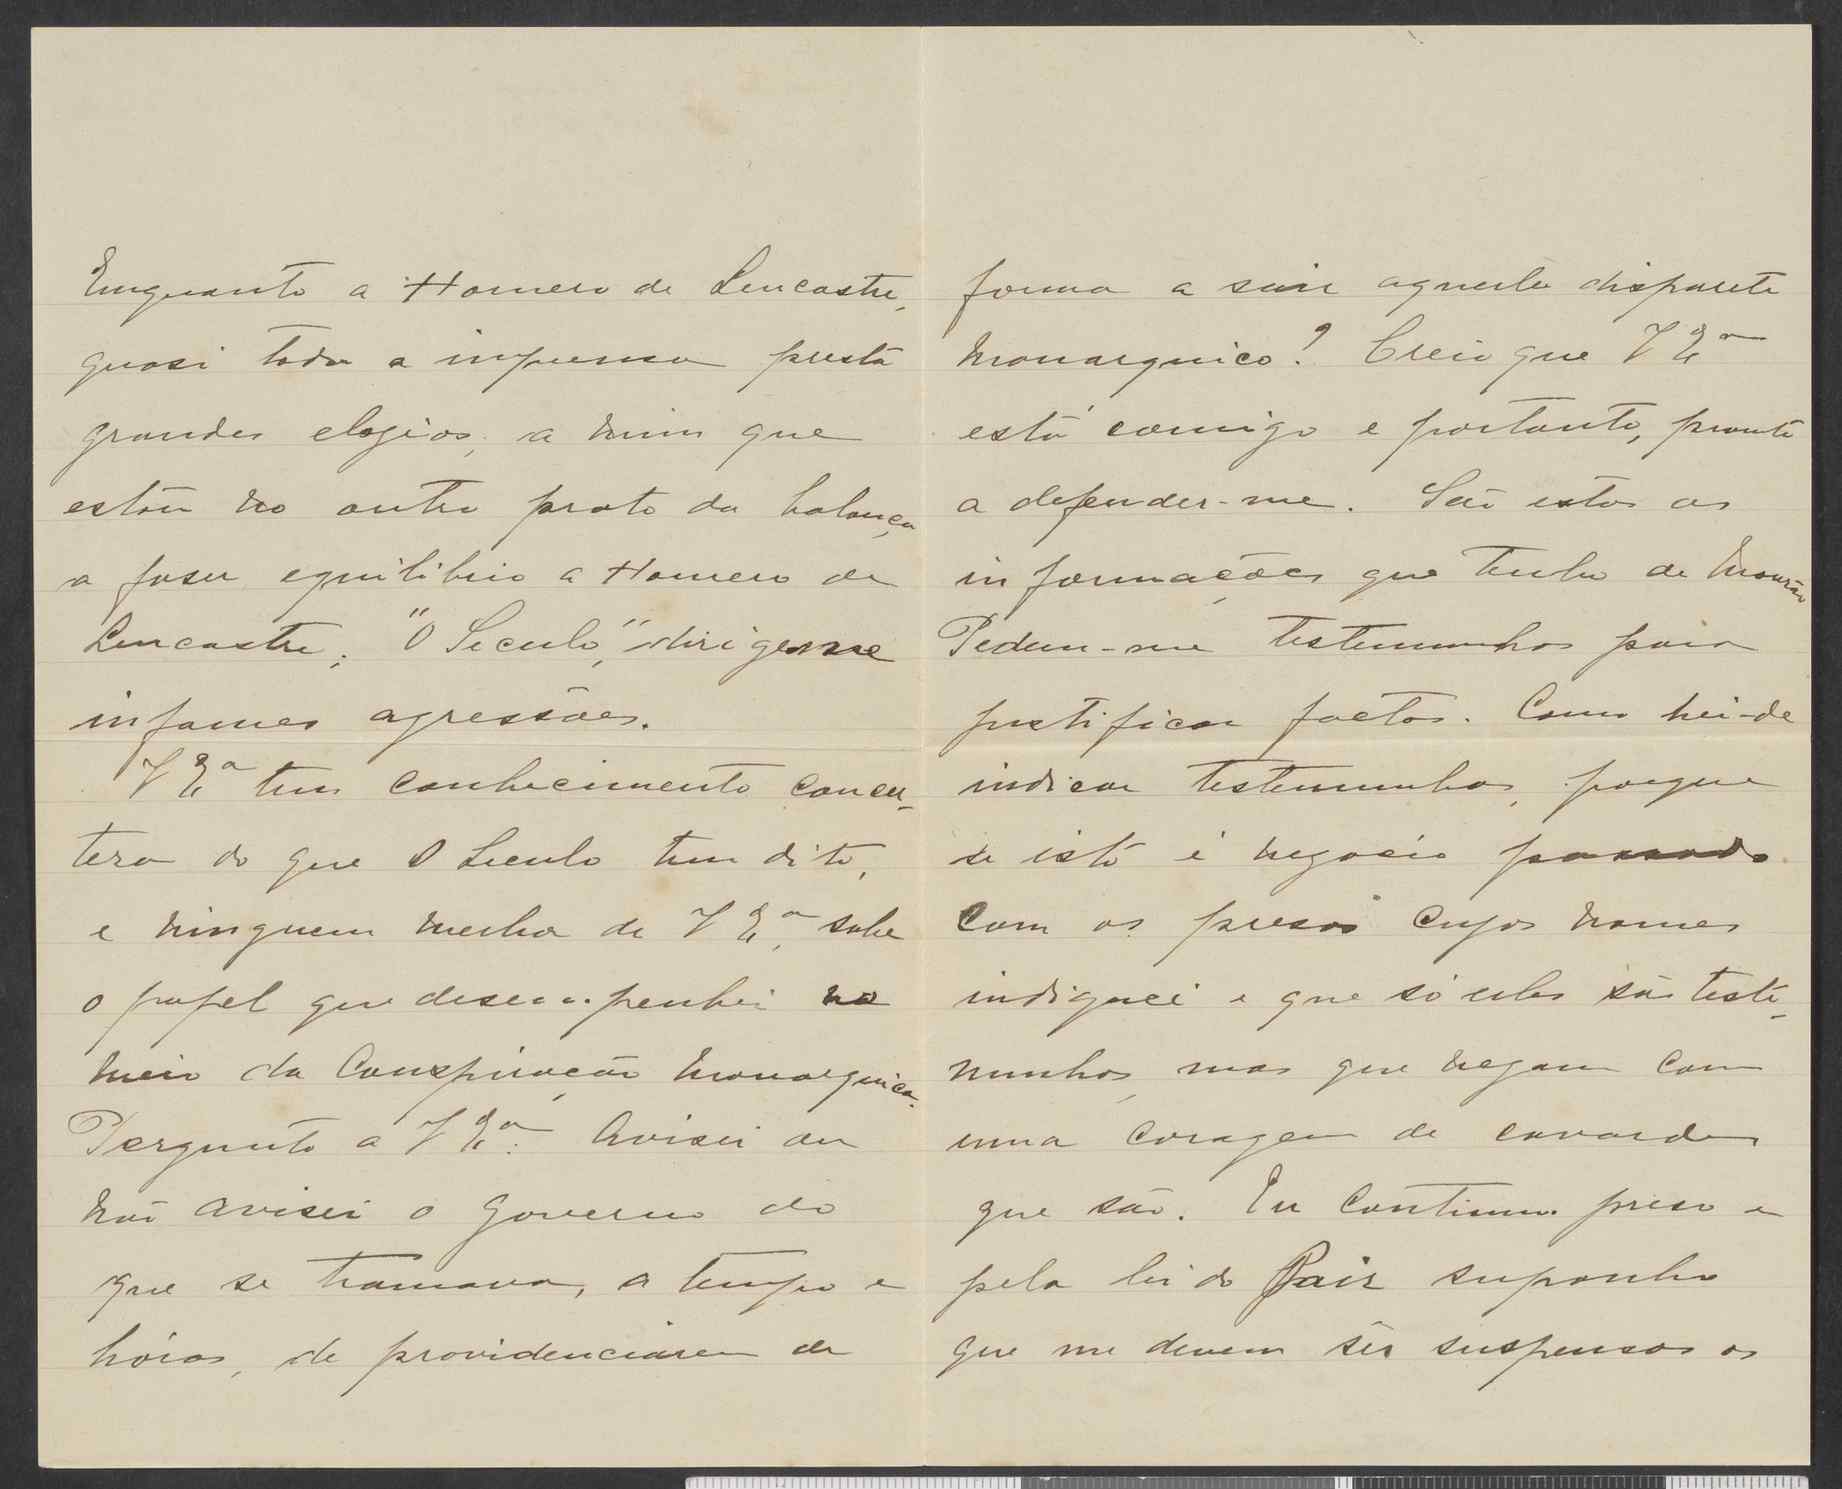 Emquanto a Homero de Lencastre,
quasi toda a imprensa presta
grandes elogios, a mim que
estou no outro prato da balança
a faser equilibrio a Homero de
Lencastre, "O Seculo," dirigem-me
infames agressões.
V Exª tem conhecimento concer-
tera do que O Seculo tem dito,
e ninguem melhor de V Exª, sabe
o papel que desempenhei no
meio da Conspiração monarquica.
Pergunto a V Exª: Avisei ou
não avisei o Governo do
que se tramava, a tempo e
hóras, de providenciarem de
forma a sair aquele disparate
monarquico? Creio que V Exª
está comigo e portanto, pronto
a defender-me. São estas as
informações que tenho de
Pedem-me testemunhas para
justificar factos. Como hei-de
indicar testemunhas, porque
se isto é negocio passado
com os presos cujos nomes
indiquei e que só eles são teste-
munhas, mas que negam com
uma coragem de covardes
que são. Eu continuo preso e
pela lei do Paiz suponho
que me devem sêr suspensos os